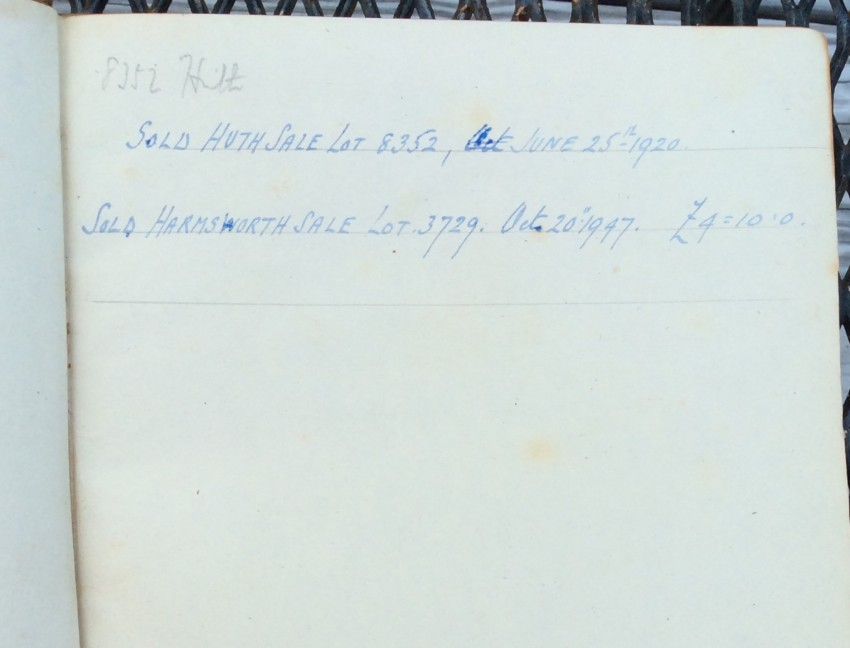 8352 Huth
SOLD HUTH SALE LOT 8352, JUNE 25th 1920.
SOLD HARMSWORTH SALE LOT. 3729. Oct. 20" 1947. £4=10·0.